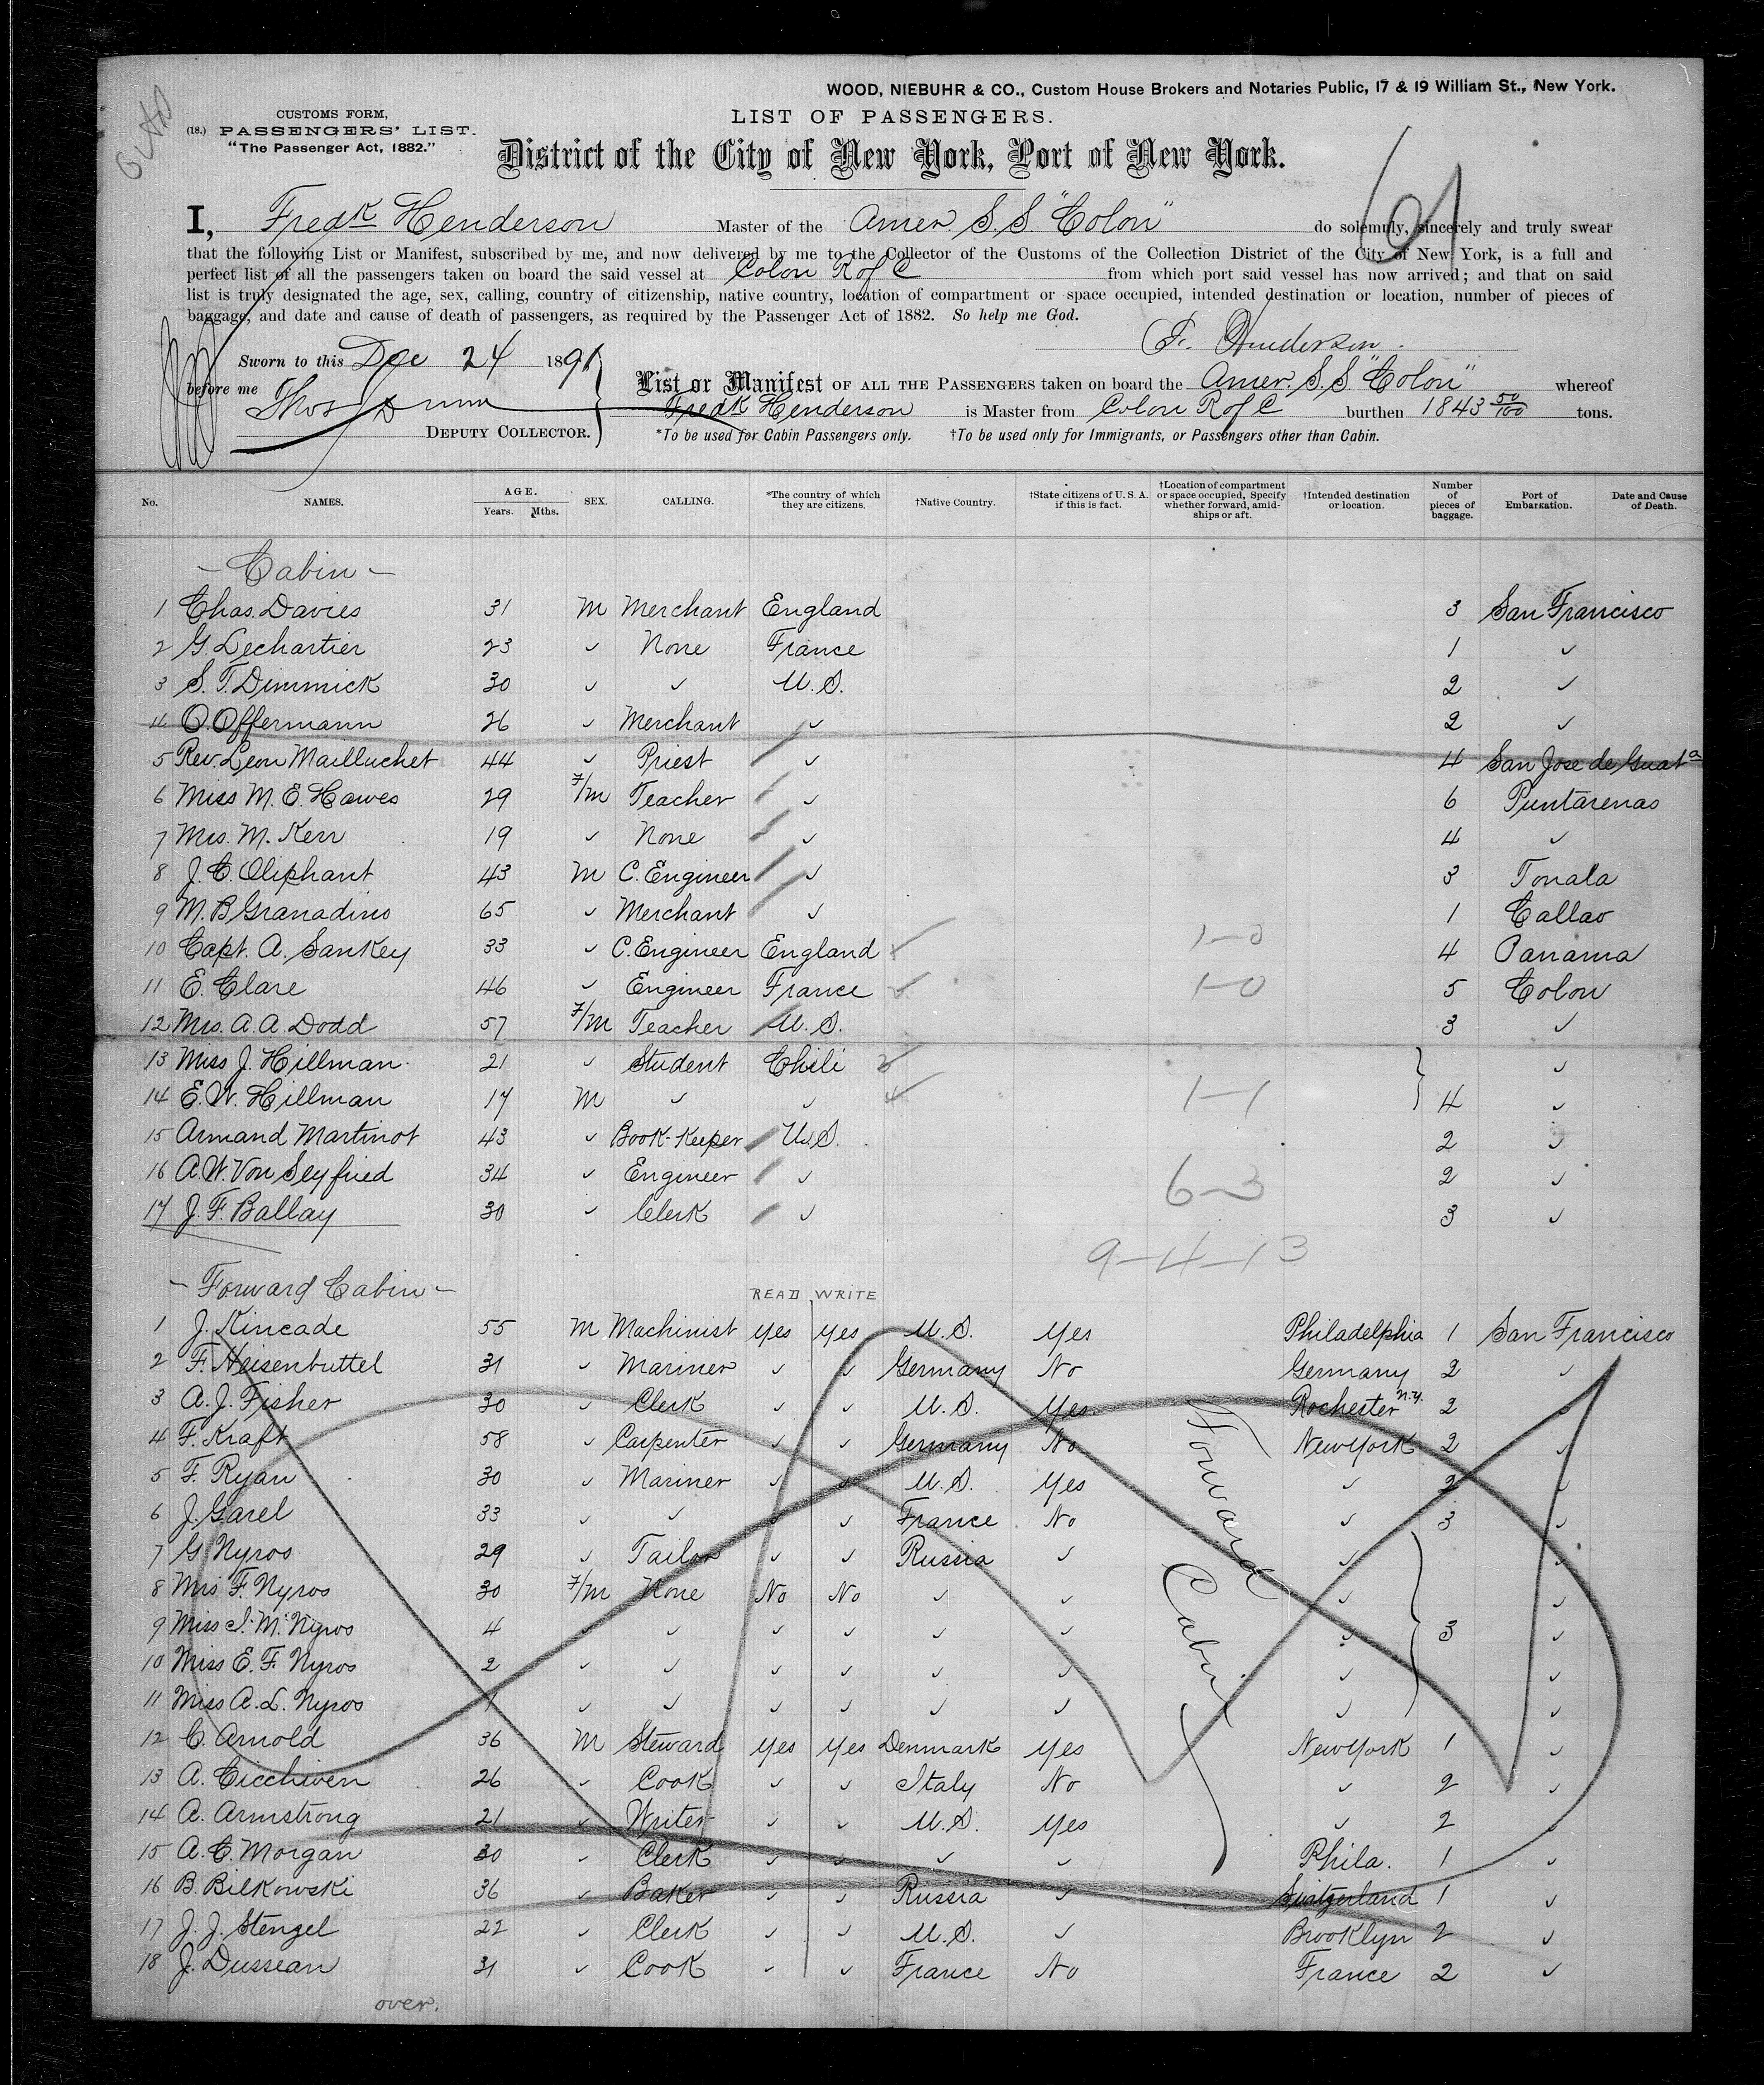 WOOD, NIEBUHR & CO., Custom House Brokers and Notaries Public, 17 & 19 William St., New York.
CUSTOMS FORM,
(18.) PASSENGERS' LIST.
"The Passenger Act, 1882."
LIST OF PASSENGERS.
District of the City of New York, Port of New York.
I, Fredk Henderson Master of the Amer S.S. "Colon" do solemnly, sincerely and truly swear
that the following List or Manifest, subscribed by me, and now delivered by me to the Collector of the Customs of the Collection District of the City of New York, is a full and
perfect list of all the passengers taken on board the said vessel at Colon R of C from which port said vessel has now arrived; and that on said
list is truly designated the age, sex, calling, country of citizenship, native country, location of compartment or space occupied, intended destination or location, number of pieces of
baggage, and date and cause of death of passengers, as required by the Passenger Act of 1882. So help me God.
F. Henderson.
Sworn to this Dec 24 1891
before me Thos
DEPUTY COLLECTOR.
List or Manifest OF ALL THE PASSENGERS taken on board the Amer. S.S. "Colon" whereof
Fredk Henderson is Master from Colon R of C burthen 1843 50/100 tons.
*To be used for Cabin Passengers only. †To be used only for Immigrants, or Passengers other than Cabin.
No. NAMES. AGE. Years. Mths. SEX. CALLING. *The country of which they are citizens. †Native Country. †State citizens of U. S. A. if this is fact. †Location of compartment or space occupied, Specify whether forward, amidships or aft. †Intended destination or location. Number of pieces of baggage. Port of Embarkation. Date and Cause of Death.
- Cabin -
1 Chas. Davies 31 M Merchant England 3 San Francisco
2 G. Lechartier 23 ✓ None France 1 ✓
3 S. T. Dimmick 30 ✓ ✓ U.S. 2 ✓
4 O. Offermann 26 ✓ Merchant ✓ 2 ✓
5 Rev. Leon Mailluchet 44 ✓ Priest ✓ 4 San Jose de Guata
6 Miss M. E. Hawes 29 F/m Teacher ✓ 6 Puntarenas
7 Mrs. M. Kerr 19 ✓ None ✓ 4 ✓
8 J. C. Oliphant 43 M C. Engineer ✓ 3 Tonala
9 M. B Granadino 65 ✓ Merchant ✓ 1 Callao
10 Capt. A. Sankey 33 ✓ C. Engineer England ✓ 1-0 4 Panama
11 E. Clare 46 ✓ Engineer France ✓ 1-0 5 Colon
12 Mrs. A. A. Dodd 57 F/m Teacher U.S. 3 ✓
13 Miss J. Hillman 21 ✓ Student Chili ✓
14 E. W. Hillman 17 M ✓ ✓ 1-1 4 ✓
15 Armand Martinot 43 ✓ Book-Keeper U.S. 2 ✓
16 A. W. Von Seyfried 34 ✓ Engineer ✓ 6-3 2 ✓
17 J. F. Ballay 30 ✓ Clerk ✓ 3 ✓
9-4-13
- Forward Cabin - READ WRITE
1 J. Kincade 55 M Machinist Yes Yes U.S. Yes Philadelphia 1 San Francisco
2 F. Heisenbuttel 31 ✓ Mariner ✓ ✓ Germany No Germany 2 ✓
3 A. J. Fisher 30 ✓ Clerk ✓ ✓ U.S. Yes Rochester N.Y. 2 ✓
4 F. Kraft 58 ✓ Carpenter ✓ ✓ Germany No New York 2 ✓
5 F. Ryan 30 ✓ Mariner ✓ ✓ U.S. Yes ✓ 2 ✓
6 J. Garel 33 ✓ ✓ ✓ ✓ France No ✓ 3 ✓
7 G Nyros 29 ✓ Tailor ✓ ✓ Russia ✓ ✓ ✓
8 Mrs F. Nyros 30 F/m None No No ✓ ✓ ✓ ✓
9 Miss S. M. Nyros 4 ✓ ✓ ✓ ✓ ✓ ✓ ✓ 3 ✓
10 Miss E. F. Nyros 2 ✓ ✓ ✓ ✓ ✓ ✓ ✓ ✓
11 Miss A. L. Nyros 1 ✓ ✓ ✓ ✓ ✓ ✓ ✓ ✓
12 C. Arnold 36 M Steward Yes Yes Denmark Yes New York 1 ✓
13 A. Cicchiven 26 ✓ Cook ✓ ✓ Italy No ✓ 2 ✓
14 A. Armstrong 21 ✓ Writer ✓ ✓ U.S. Yes ✓ 2 ✓
15 A. C. Morgan 30 ✓ Clerk ✓ ✓ ✓ ✓ Phila. 1 ✓
16 B. Bilkowski 36 ✓ Baker ✓ ✓ Russia ✓ Switzerland 1 ✓
17 J. J. Stengel 22 ✓ Clerk ✓ ✓ U.S. ✓ Brooklyn 2 ✓
18 J. Dussean 31 ✓ Cook ✓ ✓ France No France 2 ✓
Forward Cabin
over.